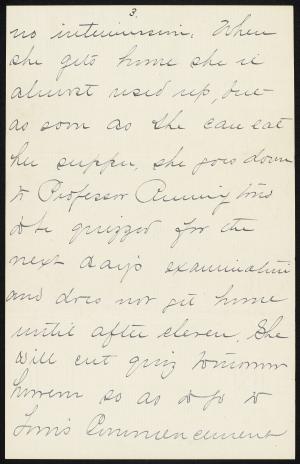 3.
no intermission. When
she gets home she is
almost used up, but
as soon as she can eat
her supper, she goes down
to Professor Pennington's
to be quizzed for the
next day's examination
and does not get home
until after eleven. She
will cut quiz tomorrow
however so as to go to
Tom's Commencement